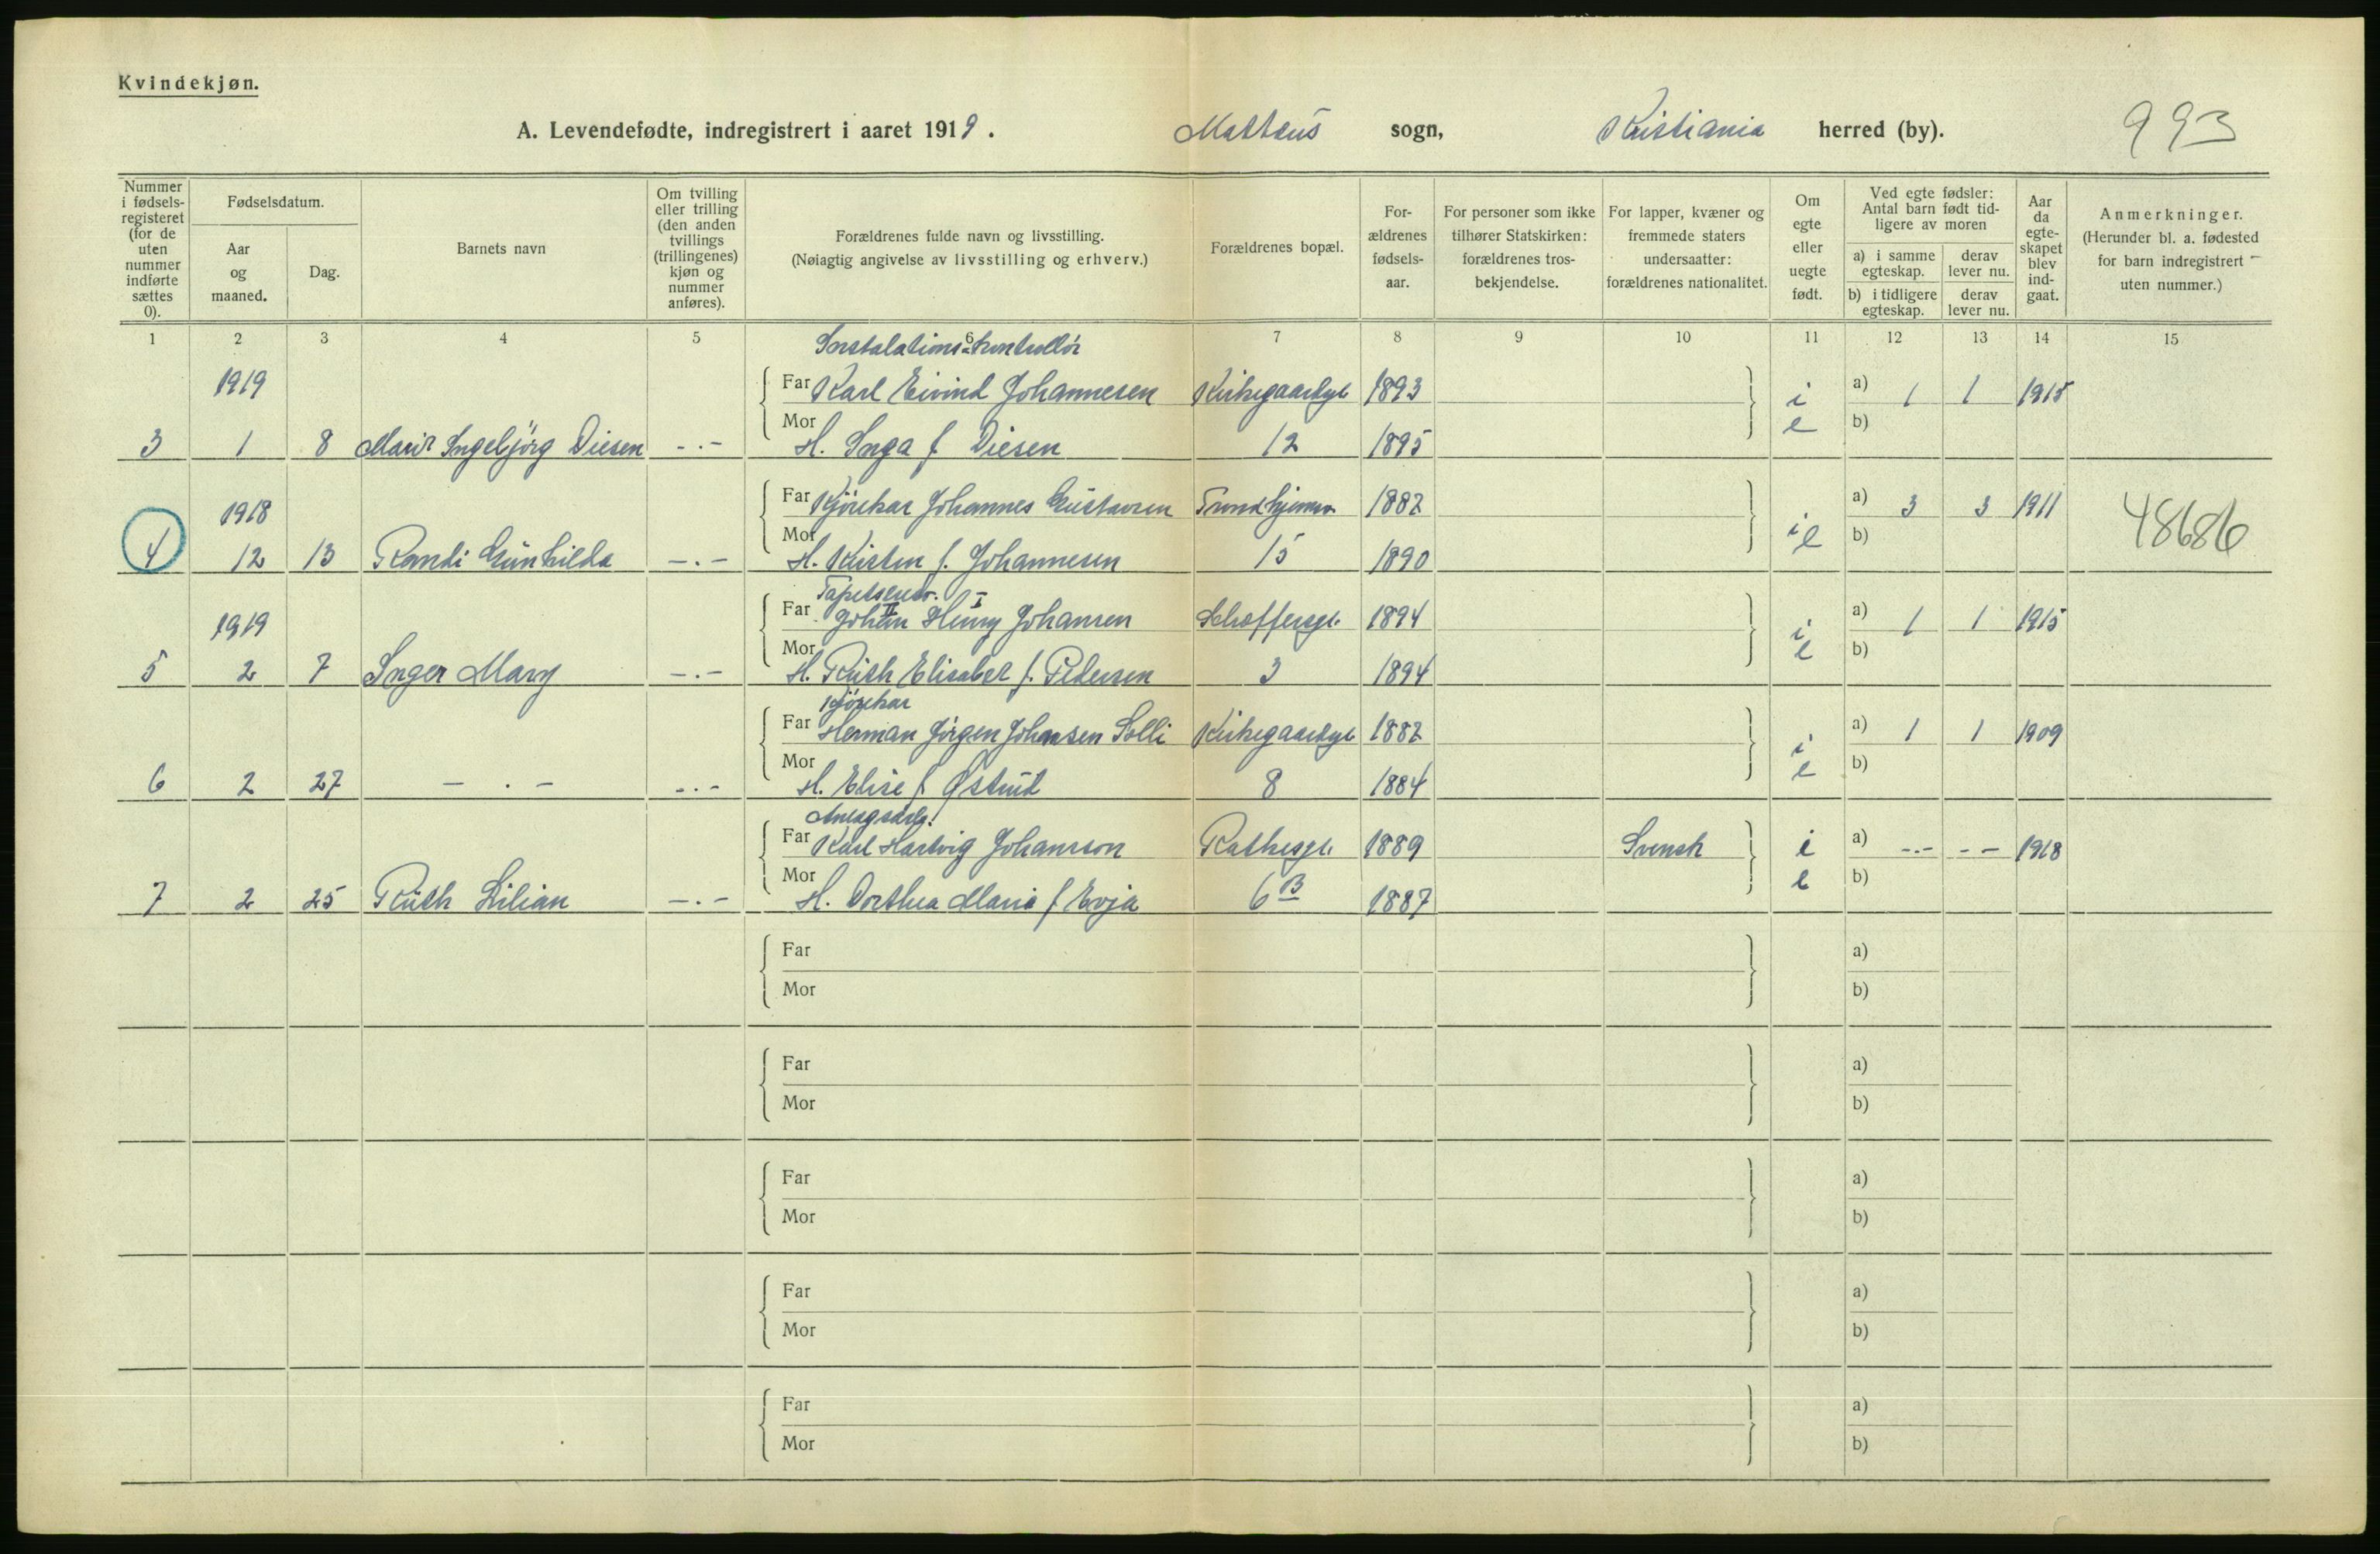 Kvindekjøn.
A. Levendefødte, indregistrert i aaret 1919. Matteus sogn, Kristiania herred (by). 993
Nummer i fødsels-registeret (for de uten nummer indførte sættes 0).
Fødselsdatum.
Aar og maaned.
Dag.
Barnets navn
Om tvilling eller trilling (den anden tvillings (trillingenes) kjøn og nummer anføres).
Forældrenes fulde navn og livsstilling.
(Nøiagtig angivelse av livsstilling og erhverv.)
Forældrenes bopæl.
For-ældrenes fødsels-aar.
For personer som ikke tilhører Statskirken: forældrenes tros-bekjendelse.
For lapper, kvæner og fremmede staters undersaatter: forældrenes nationalitet.
Om egte eller uegte født.
Ved egte fødsler: Antal barn født tid-ligere av moren
a) i samme egteskap. derav lever nu.
b) i tidligere egteskap. derav lever nu.
Aar da egte-skapet blev ind-gaat.
Anmerkninger.
(Herunder bl. a. fødested for barn indregistrert uten nummer.)
1 2 3 4 5 6 7 8 9 10 11 12 13 14 15
Instalations-kontrollör
1919 Far Karl Eivind Johannesen Kirkegaardsgt. 1893 i a) 1 1 1915
3 1 8 Ingebjörg Diesen -.- Mor H. Inga f. Diesen 12 1895 e b)
1918 Far Kjörekar Johannes Gustavsen 1882 a) 3 3 1911
4 12 13 Randi Gunhilda -.- Mor H. Kirsten f. Johannesen 15 1890 ie b) 48686
Tapetserer. I
1919 Far II Johan Henry Johansen 1894 i a) 1 1 1915
5 2 7 Inger Mary -.- Mor H. Ruth Elisabet f. Pedersen 3 1894 e b)
Kjörekar
Far Herman Jörgen Johansen Solli Kirkegaardsgt 1882 i a) 1 1 1909
6 2 27 - . - -.- Mor H. Elise f. Østrud 8 1884 e b)
Far Karl Hartvig Johansson Rathkesgt. 1889 Svensk i a) -.- - - 1918
7 2 25 Ruth Lilian -.- Mor H. Dorthea Maria f. Evja 6B 1887 e b)
Far a)
Mor b)
Far a)
Mor b)
Far a)
Mor b)
Far a)
Mor b)
Far a)
Mor b)